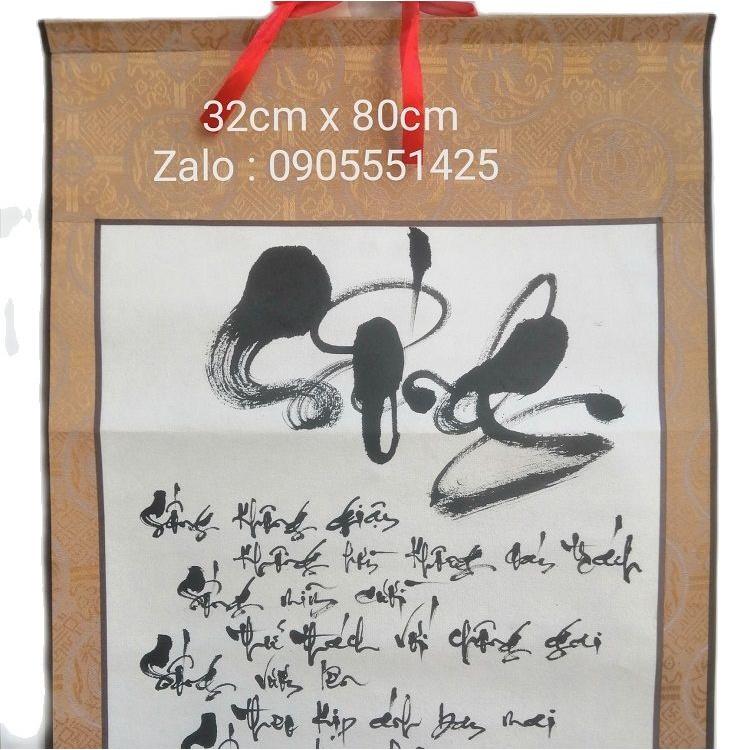 32cm x 80cm
Zalo : 0905551425
Sống không giận
không hờn không oán trách
Sống mỉm cười
thử thách với chông gai
Sống vươn lên
theo kịp ánh ban mai